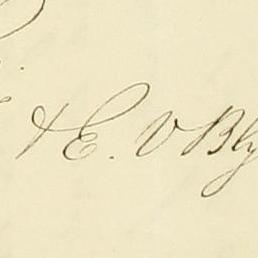 & E. V Bly